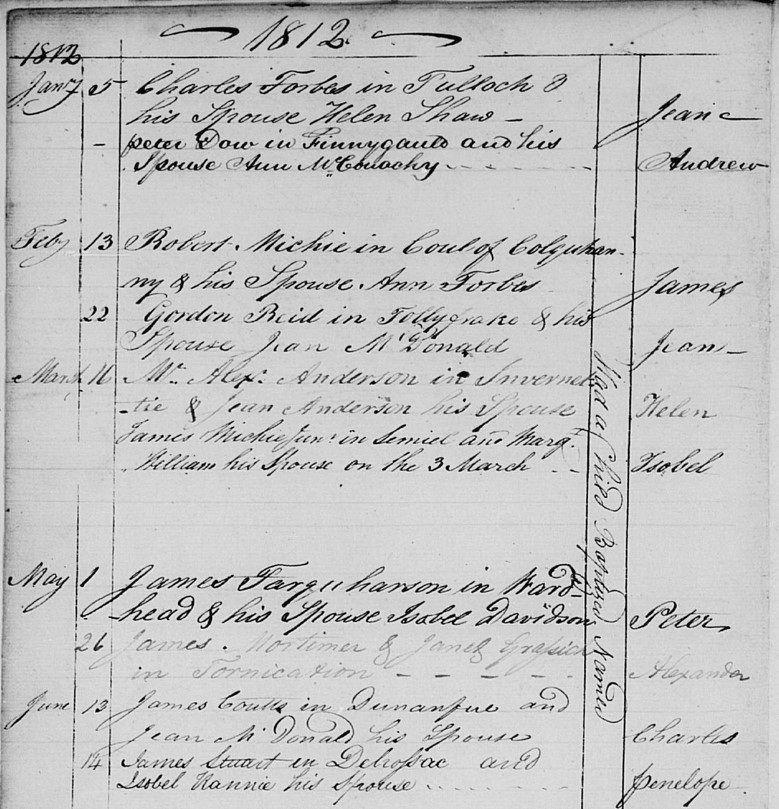 1812
1812
Jany 5 Charles Forbes in Tulloch &
his Spouse Helen Shaw - Jean
- peter Dow in Finnygauld and his
Spouse Ann McConachy Andrew
Feby 13 Robert Michie in Coul of Colquhan-
ny & his Spouse Ann Forbes James
22 Gordon Reid in & his
Spouse Jean McDonald Jean
March 16 Mr. Alexr. Anderson in Invernet-
-tie & Jean Anderson his Spouse Helen
James Michie Junr. in Semiel and Margt.
William his Spouse on the 3 March Isobel
Had a Child Baptized Named
May 1 James Farquharson in Ward-
head & his Spouse Isobel Davidson Peter
26 James Mortimer & Janet Grassick
in Fornication - - - - - Alexander
June 13 James Coutts in Dunanfue and
Jean McDonald his Spouse Charles
14 James Stuart in Delrossac and
Isobel Rannie his Spouse penelope